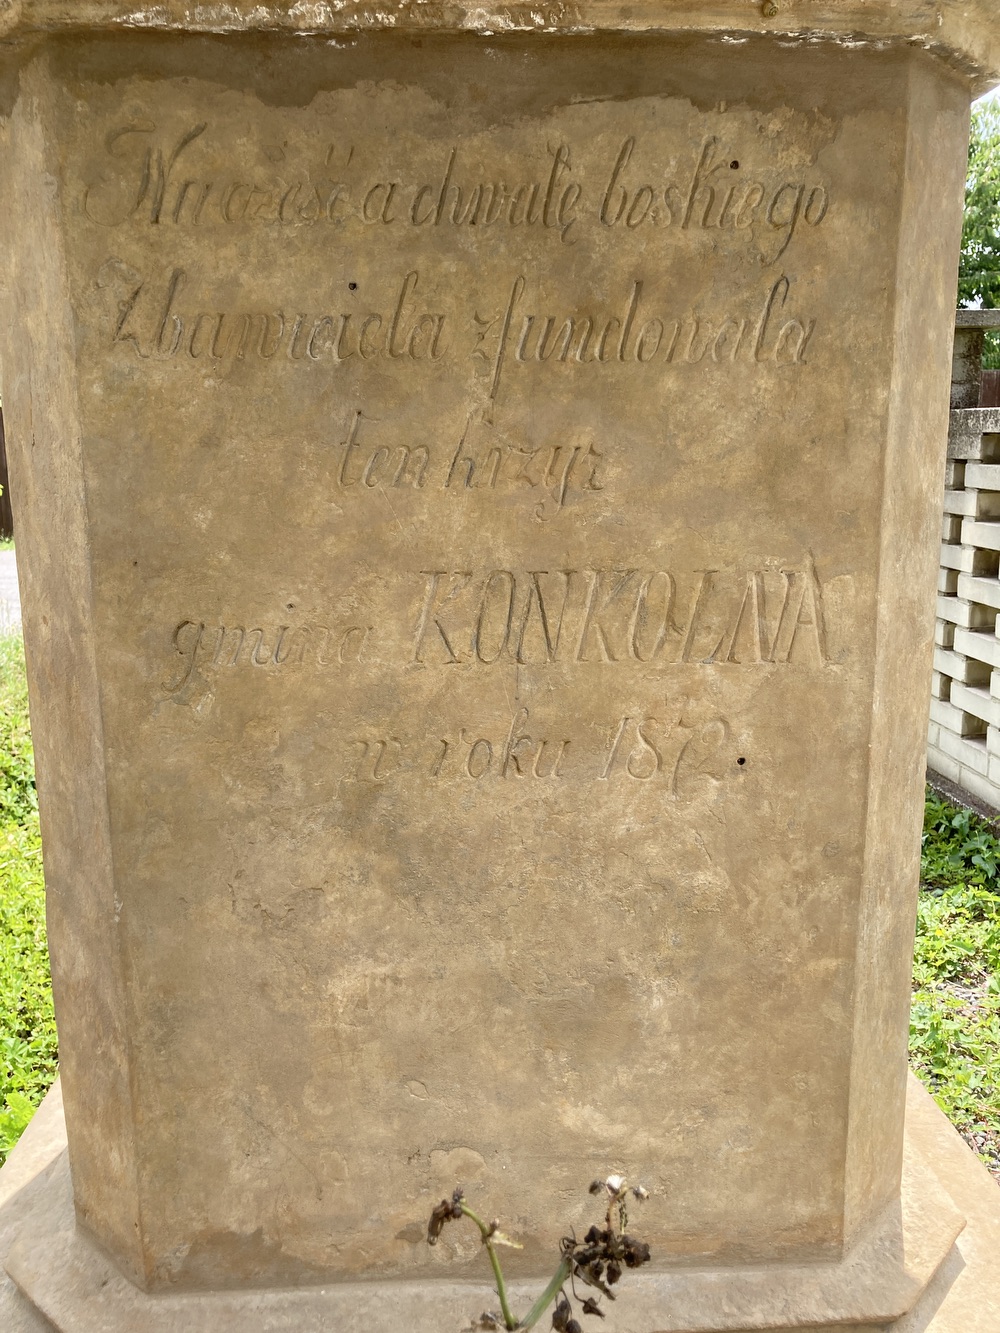 Na cześć a chwałę boskiego
Zbawiciela zfundowala
ten krzyz
gmina KONKOLNA
w roku 1872.